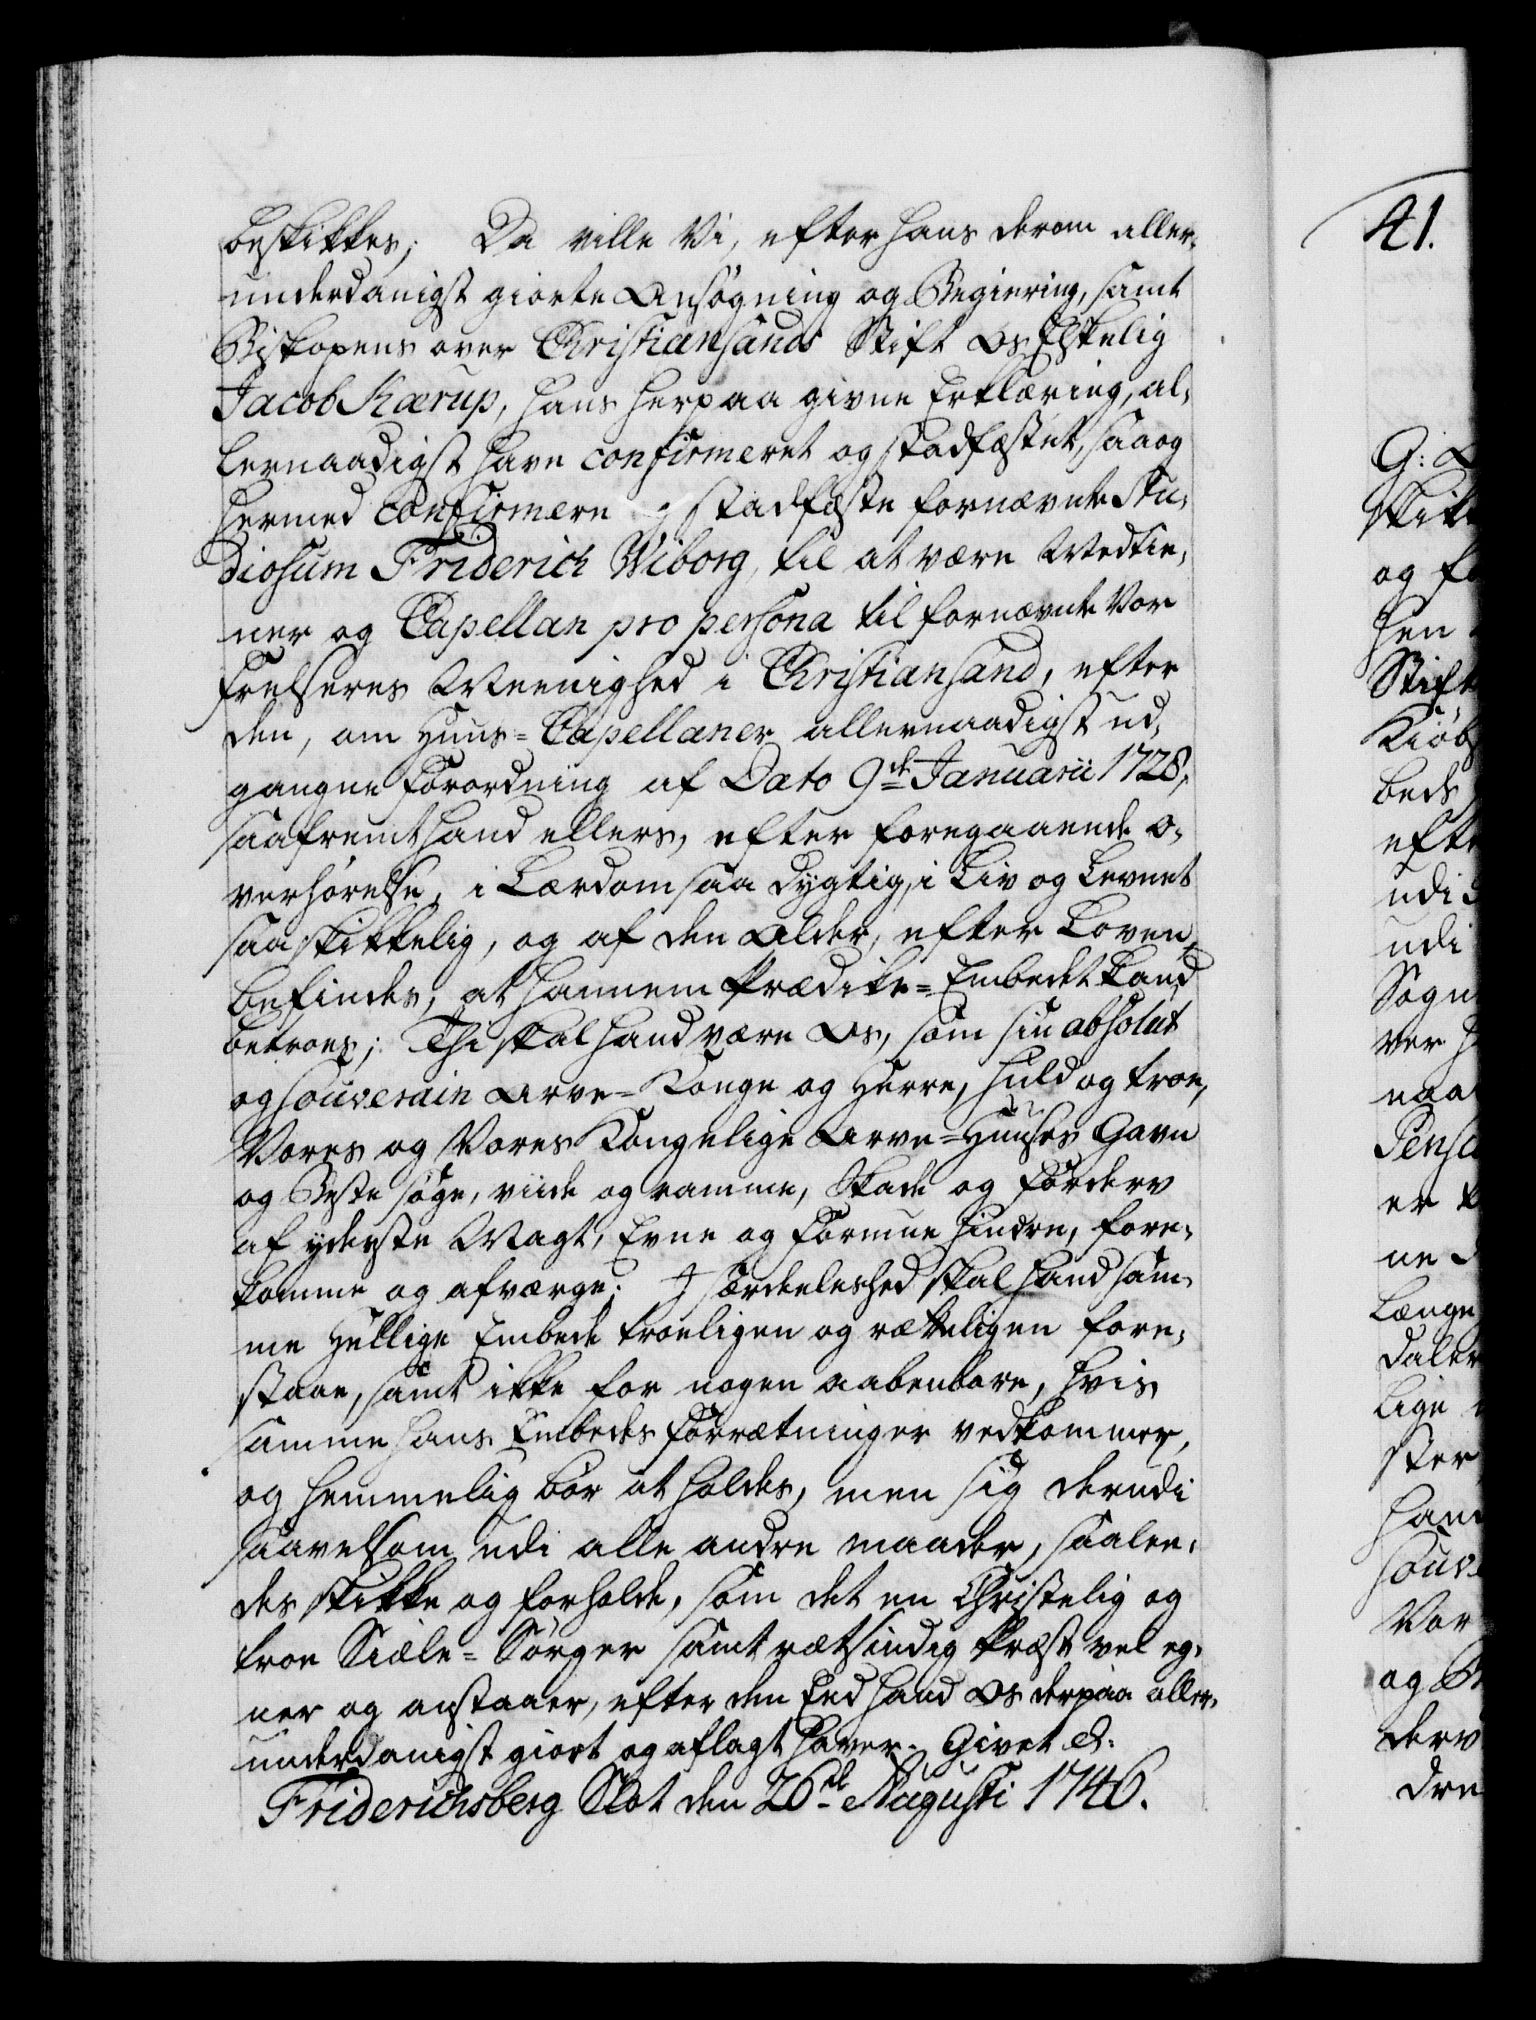 beskikkes; Da ville Vi, efter hans derom aller,
underdanigst giorte Ansøgning og Begiering, samt
Biskopens over Christiansands Stift Os Elskelig
Jacob Kærup, hans herpaa givne Erklæring, al,
lernaadigst have confirmeret og stadfæstet, saa og
hermed Confirmere og stadfæste fornævnte Stu,
diosum Friderich Wiborg, til at være Medtie,
ner og Capellan pro persona til fornævnte Vor
Frelseres Meenighed i Christiansand, efter
den, om Huus-Capellaner allernaadigst ud,
gangne Forordning af Dato 9de Januarii 1728,
saafremt hand ellers, efter foregaaende o,
verhørelse, i Lærdom saa dygtig, i Liv og Levnet
saa skikkelig, og af den Alder, efter Loven,
befindes, at hannem Prædike-Embedet kand
betroes; Thi skal hand være Os, som sin absolut
og souverain Arve-Konge og Herre, huld og troe,
Vores og Vores Kongelige Arve-Huuses Gavn
og Beste søge, viide og ramme, Skade og Forderv
af yderste Magt, Evne og Formue hindre, fore,
komme og afværge; J særdeleshed skal hand sam,
me Hellige Embede troeligen og rætteligen fore,
staae, samt ikke for nogen aabenbare, hvis
samme hans Embedes Forrætninger vedkommer,
og hemmelig bør at holdes, men sig derudi
saavelsom udi alle andre maader, saalen,
des skikke og forholde, som det en Christelig og
troe Siæle-Sørger samt rætsindig Præst vel eg,
ner og anstaaer, efter den Eed hand Os derpaa aller,
underdanigst giort og aflagt haver. Givet &.
Friderichsberg Slot den 26de Augusti 1746.
41.
G:
skik
og fo
hen
Stift
Kiøb
beds
efte
udi
udi
Sogn
ver
naa
Pens
er
ne
Længe
daler
lige
ster
hand
souv
Vor
og B
derv
dre